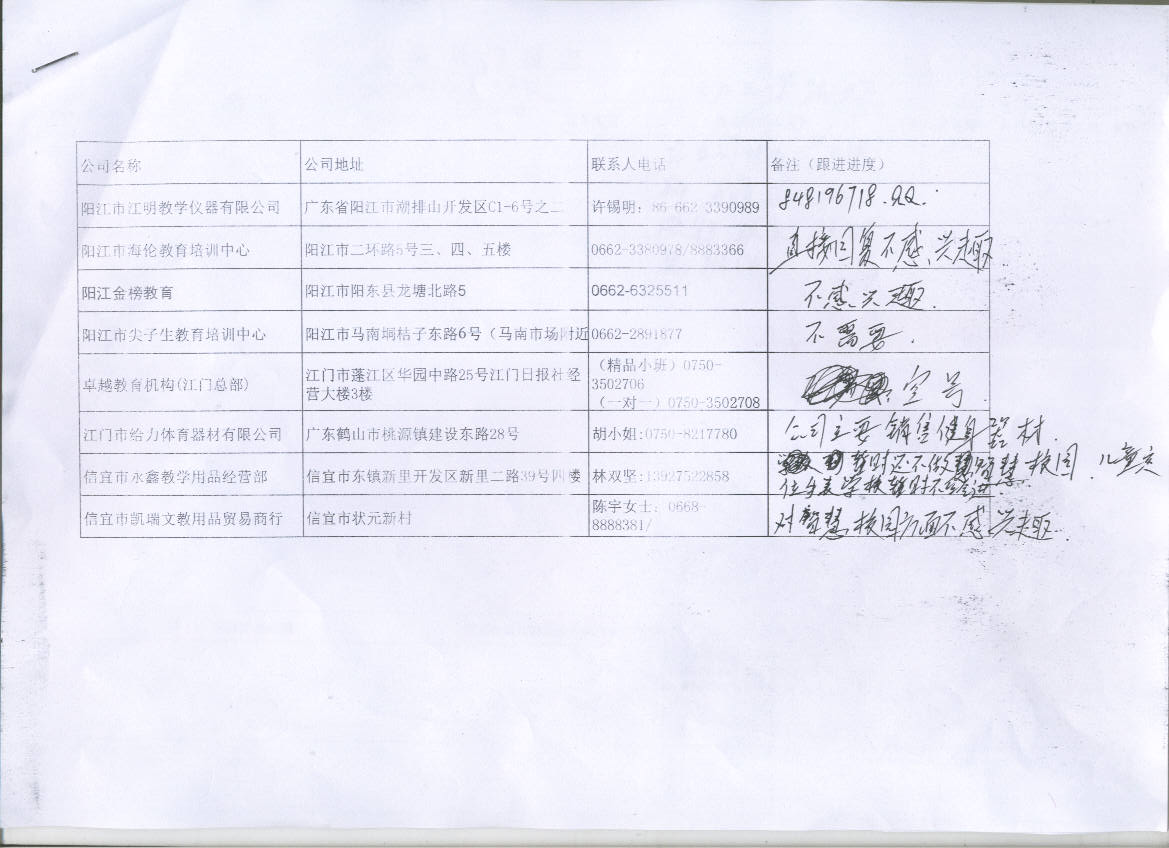 公司名称 公司地址 联系人电话 备注（跟进进度）
阳江市江明教学仪器有限公司 广东省阳江市潮排山开发区C1-6号之二 许锡明：86-662-3390989 848196718.QQ.
阳江市海伦教育培训中心 阳江市二环路5号三、四、五楼 0662-3380978/8883366 直接回复不感兴趣
阳江金榜教育 阳江市阳东县龙塘北路5 0662-6325511 不感兴趣.
阳江市尖子生教育培训中心 阳江市马南垌桔子东路6号（马南市场附近 0662-2891877 不需要.
卓越教育机构(江门总部) 江门市蓬江区华园中路25号江门日报社经 （精品小班）0750-
营大楼3楼 3502706 空号
（一对一）0750-3502708
江门市给力体育器材有限公司 广东鹤山市桃源镇建设东路28号 胡小姐:0750-8217780 公司主要销售健身器材.
信宜市永鑫教学用品经营部 信宜市东镇新里开发区新里二路39号四楼 林双坚:13927522858 暂时还不做智慧校园，儿童定
位手表学校暂时不给进.
信宜市凯瑞文教用品贸易商行 信宜市状元新村 陈宇女士：0668- 对智慧校园方面不感兴趣.
8888381/